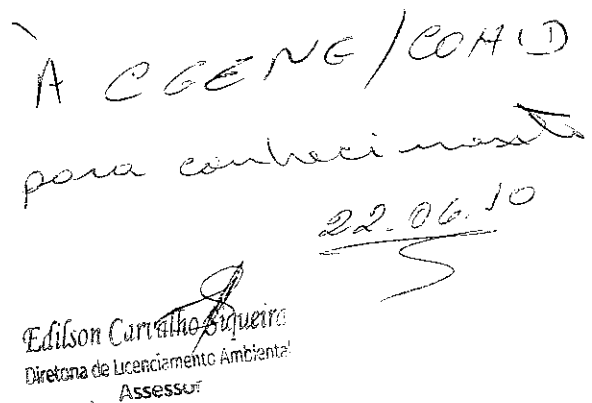 À CGENE/COHID
para conhecimento
22.06.10
Edilson Carvalho Siqueira
Diretoria de Licenciamento Ambiental
Assessor